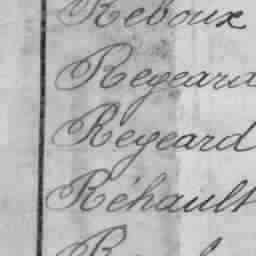 Reboux
Regeard
Regeard
Réhault